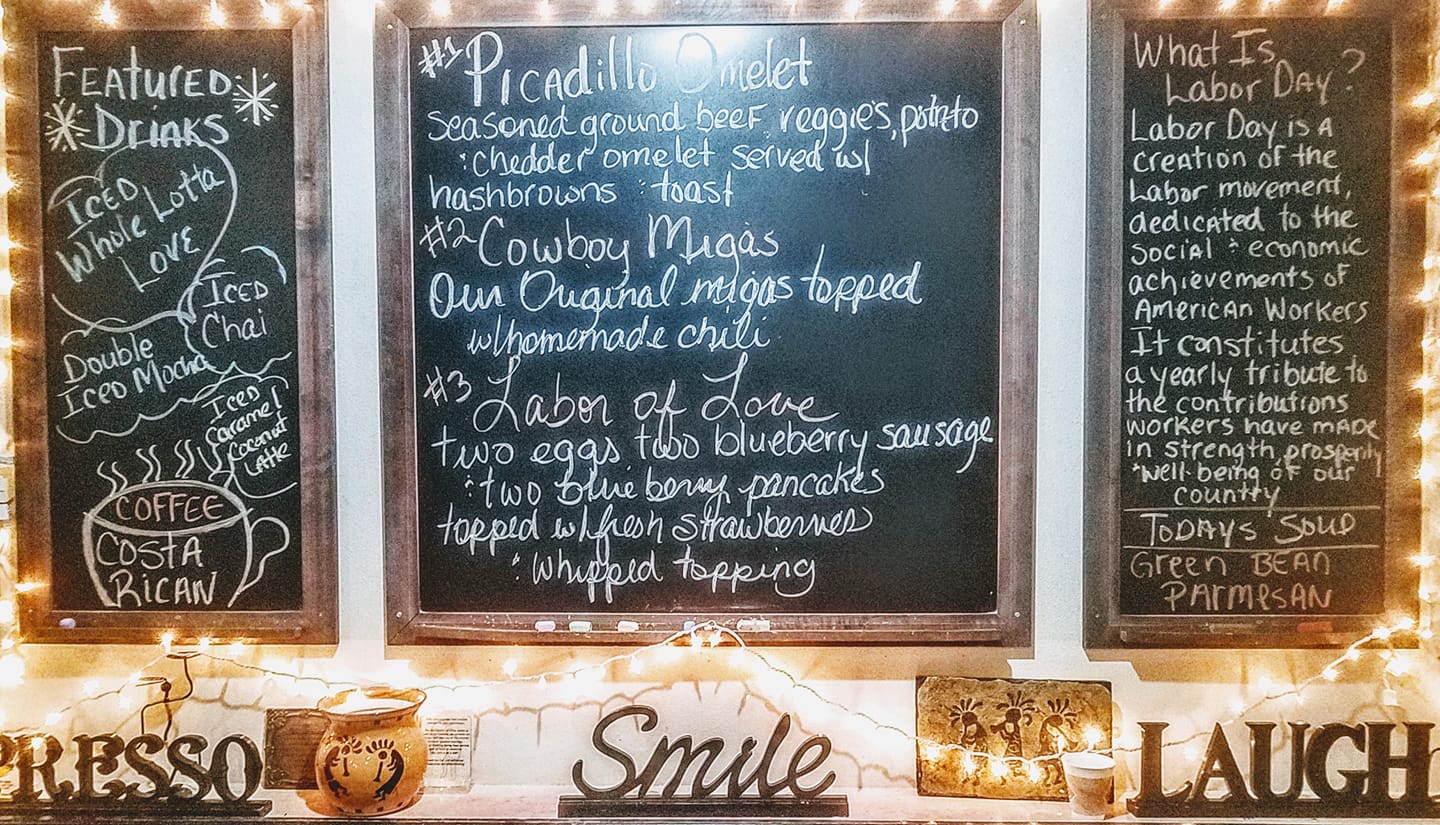 Featured
Drinks
Iced
Whole Lotta
Love
Iced
Chai
Double
Iced Mocha
Iced
Caramel
Coconut
Latte
COFFEE
COSTA
RICAN
#1 Picadillo Omelet
seasoned ground beef, veggie's, potato
: chedder omelet served w/
hashbrowns : toast
#2 Cowboy Migas
Our Original migas topped
w/homemade chili
#3 Labor of Love
two eggs, two blueberry sausage
: two blueberry pancakes
topped w/fresh strawberries
: whipped topping
What Is
Labor Day?
Labor Day is a
creation of the
Labor movement,
dedicated to the
social : economic
achievements of
American Workers
It constitutes
a yearly tribute to
the contributions
workers have made
in strength, prosperity
: well-being of our
country
Todays Soup
Green Bean
Parmesan
PRESSO
Smile
LAUGH